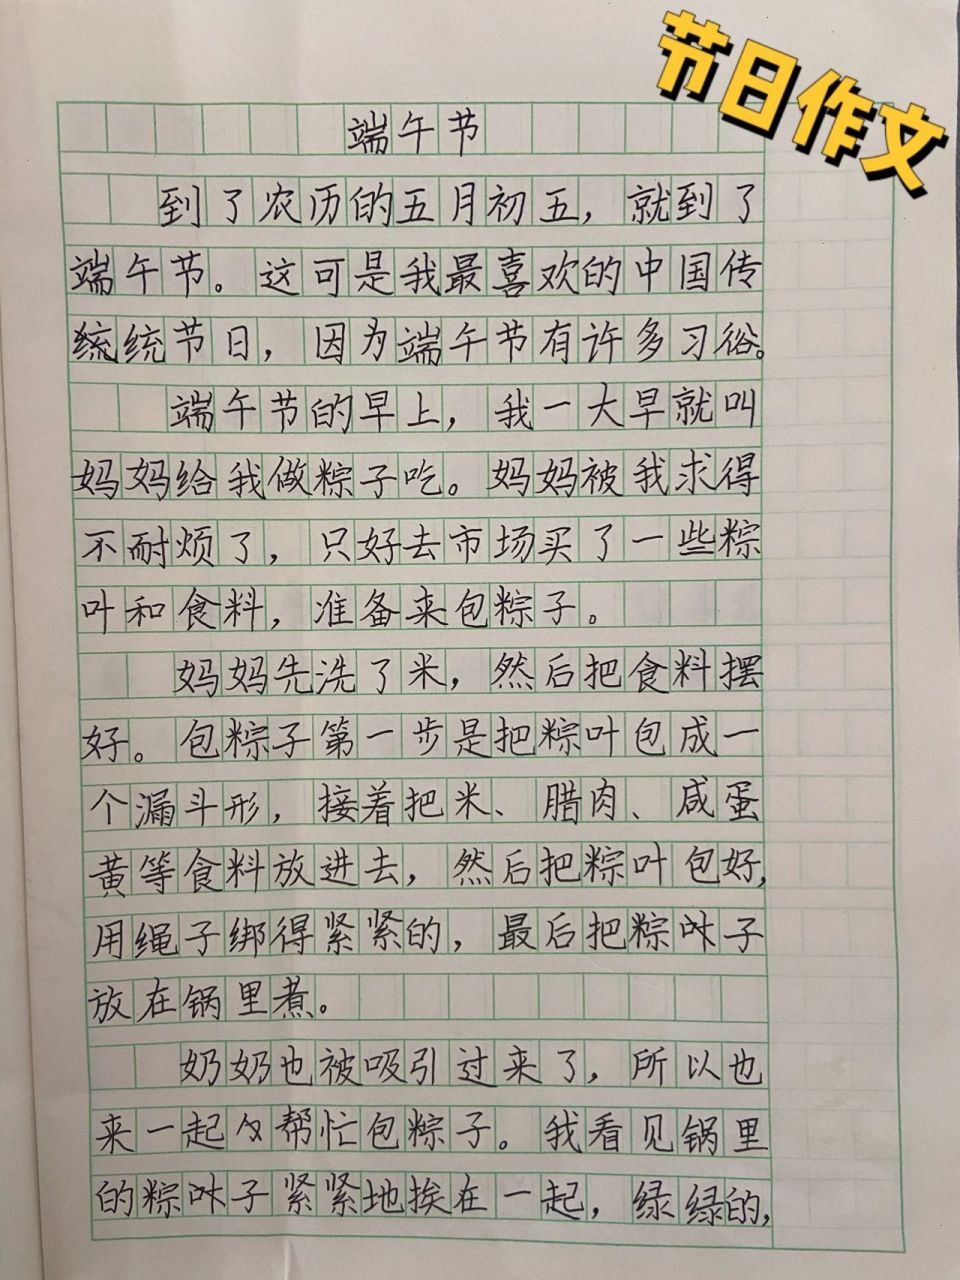 节日作文
端午节
到了农历的五月初五，就到了
端午节。这可是我最喜欢的中国传
统统节日，因为端午节有许多习俗。
端午节的早上，我一大早就叫
妈妈给我做粽子吃。妈妈被我求得
不耐烦了，只好去市场买了一些粽
叶和食料，准备来包粽子。
妈妈先洗了米，然后把食料摆
好。包粽子第一步是把粽叶包成一
个漏斗形，接着把米、腊肉、咸蛋
黄等食料放进去，然后把粽叶包好，
用绳子绑得紧紧的，最后把粽子
放在锅里煮。
奶奶也被吸引过来了，所以也
来一起帮忙包粽子。我看见锅里
的粽子紧紧地挨在一起，绿绿的，